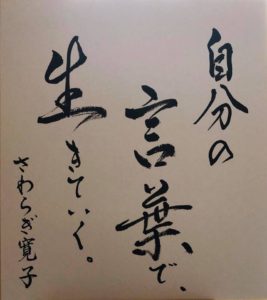 自分の
言葉で、
生きていく。
さわらぎ寛子